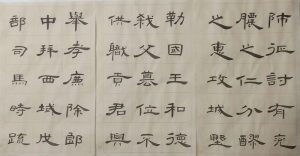 舉孝廉除郎
中拜西域戊
部司馬時疏
勒國王和德
弒父篡位不
供職貢君興
師征討有兗
膿之仁分醪
之惠攻城墅